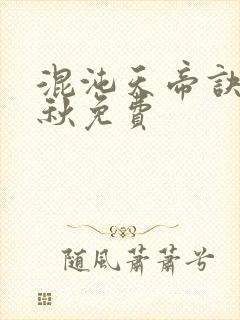 混沌天帝訣
秋免費
隨風蕭蕭兮